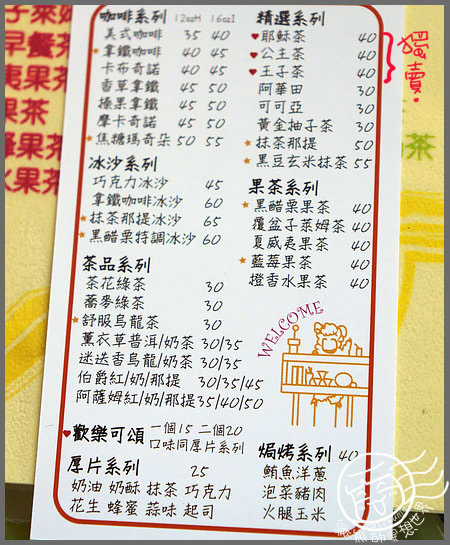 咖啡系列 12oz(H) 16oz(I)
美式咖啡 35 40
★拿鐵咖啡 40 45
卡布奇諾 40 45
香草拿鐵 45 50
榛果拿鐵 45 50
摩卡奇諾 45 50
★焦糖瑪奇朵 50 55
冰沙系列
巧克力冰沙 45
拿鐵咖啡冰沙 60
★抹茶那提冰沙 65
★黑醋栗特調冰沙 60
茶品系列
茶花綠茶 30
蕎麥綠茶 30
★舒服烏龍茶 30
薰衣草普洱/奶茶 30/35
迷迭香烏龍/奶茶 30/35
伯爵紅/奶/那提 30/35/45
阿薩姆紅/奶/那提 35/40/50
♥歡樂可頌 一個15 二個20
口味同厚片系列
厚片系列 25
奶油 奶酥 抹茶 巧克力
花生 蜂蜜 蒜味 起司
精選系列
♥耶穌茶 40
♥公主茶 40
♥王子茶 40
獨賣!
阿華田 40
可可亞 40
黃金柚子茶 40
★抹茶那提 50
★黑豆玄米抹茶 55
果茶系列
★黑醋栗果茶 40
覆盆子萊姆茶 40
夏威夷果茶 40
★藍莓果茶 40
橙香水果茶 40
WELCOME
焗烤系列 40
鮪魚洋蔥
泡菜豬肉
火腿玉米